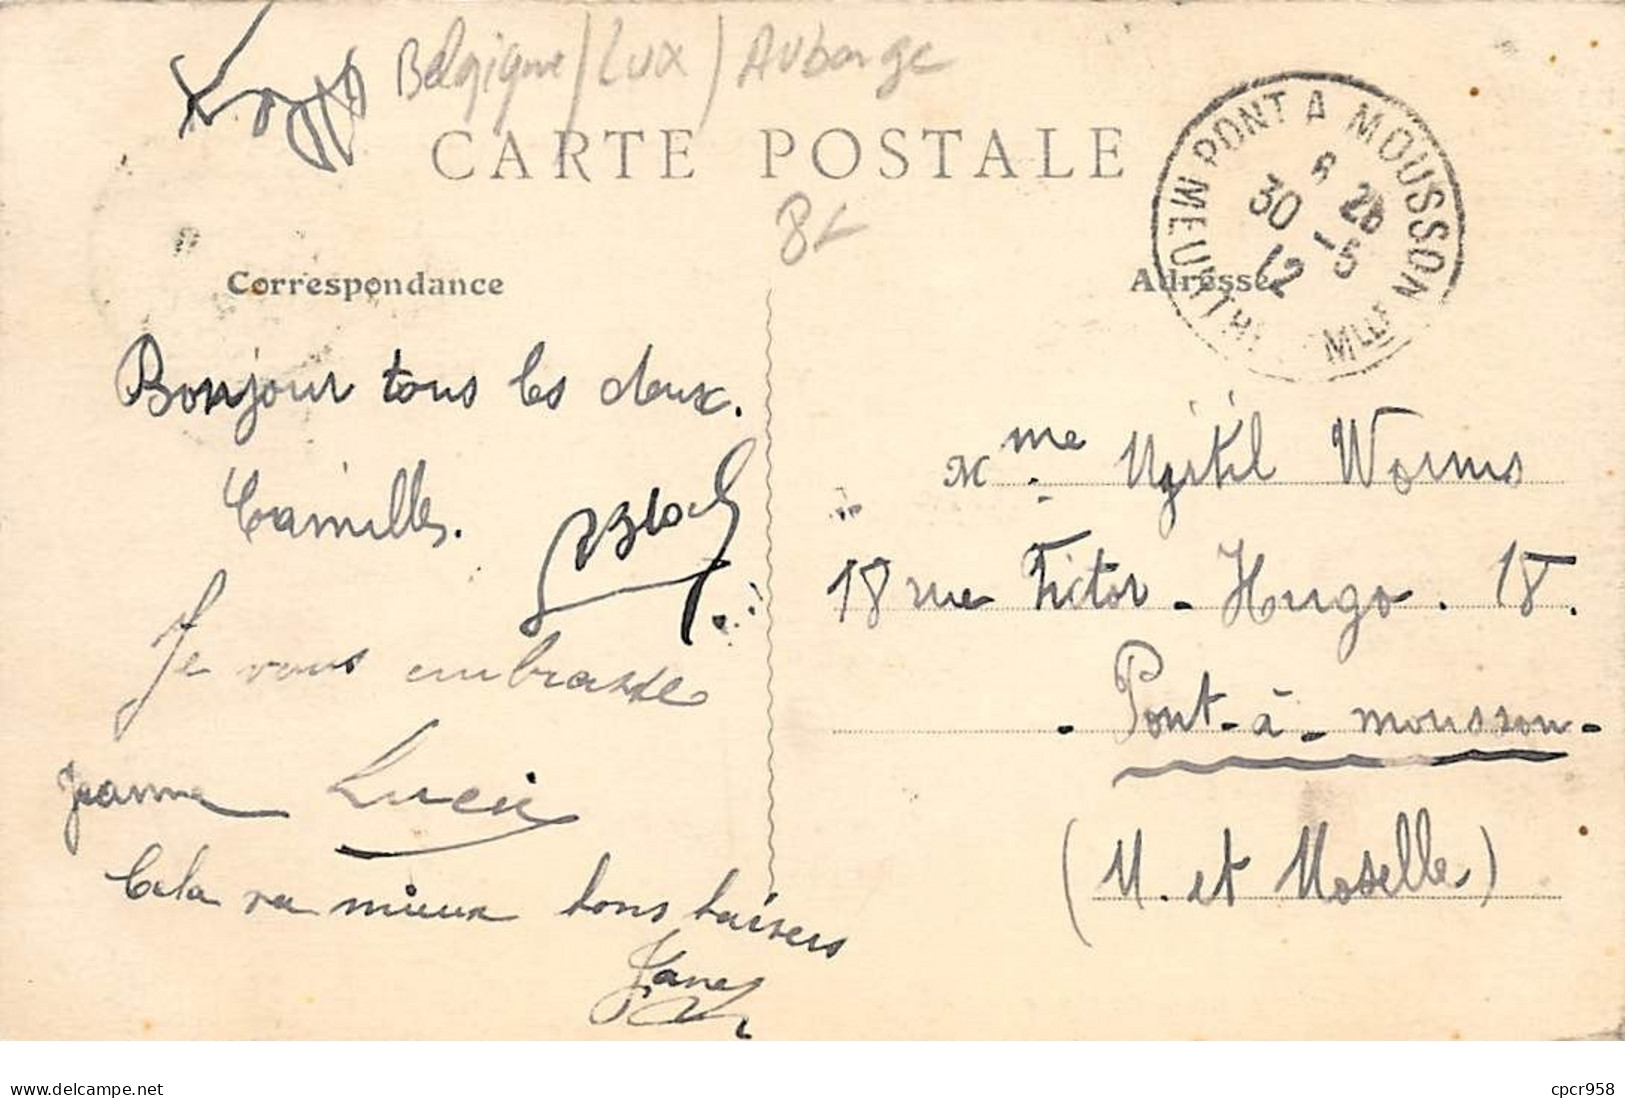 Belgique / Lux / Aubange
CARTE POSTALE
PONT A MOUSSON
MEURTHE MLLE
8 28
30 -5
12
Correspondance
Adresse
Bonjour tous les deux.
Camille.
Bloch
Je vous embrasse
Jeanne Lucie
Cela va mieux bons baisers
Jane
Mme Myrtil Worms
18 rue Victor-Hugo. 18.
- Pont-à-mousson-
(M. et Moselle)
www.delcampe.net
cpcr958